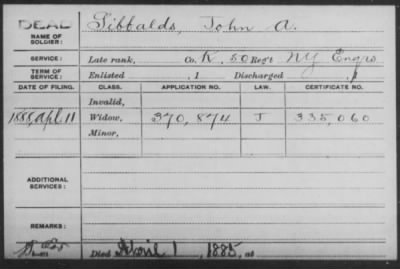 DEAD
NAME OF SOLDIER: Sibbalds, John A.
SERVICE: Late rank, Co. K, 50 Regt NY Engrs
TERM OF SERVICE: Enlisted , 1 Discharged , 1
DATE OF FILING. CLASS. APPLICATION NO. LAW. CERTIFICATE NO.
Invalid,
1888, Apl. 11 Widow, 370,874 J 335,060
Minor,
ADDITIONAL SERVICES:
REMARKS:
Died April 1, 1885, at